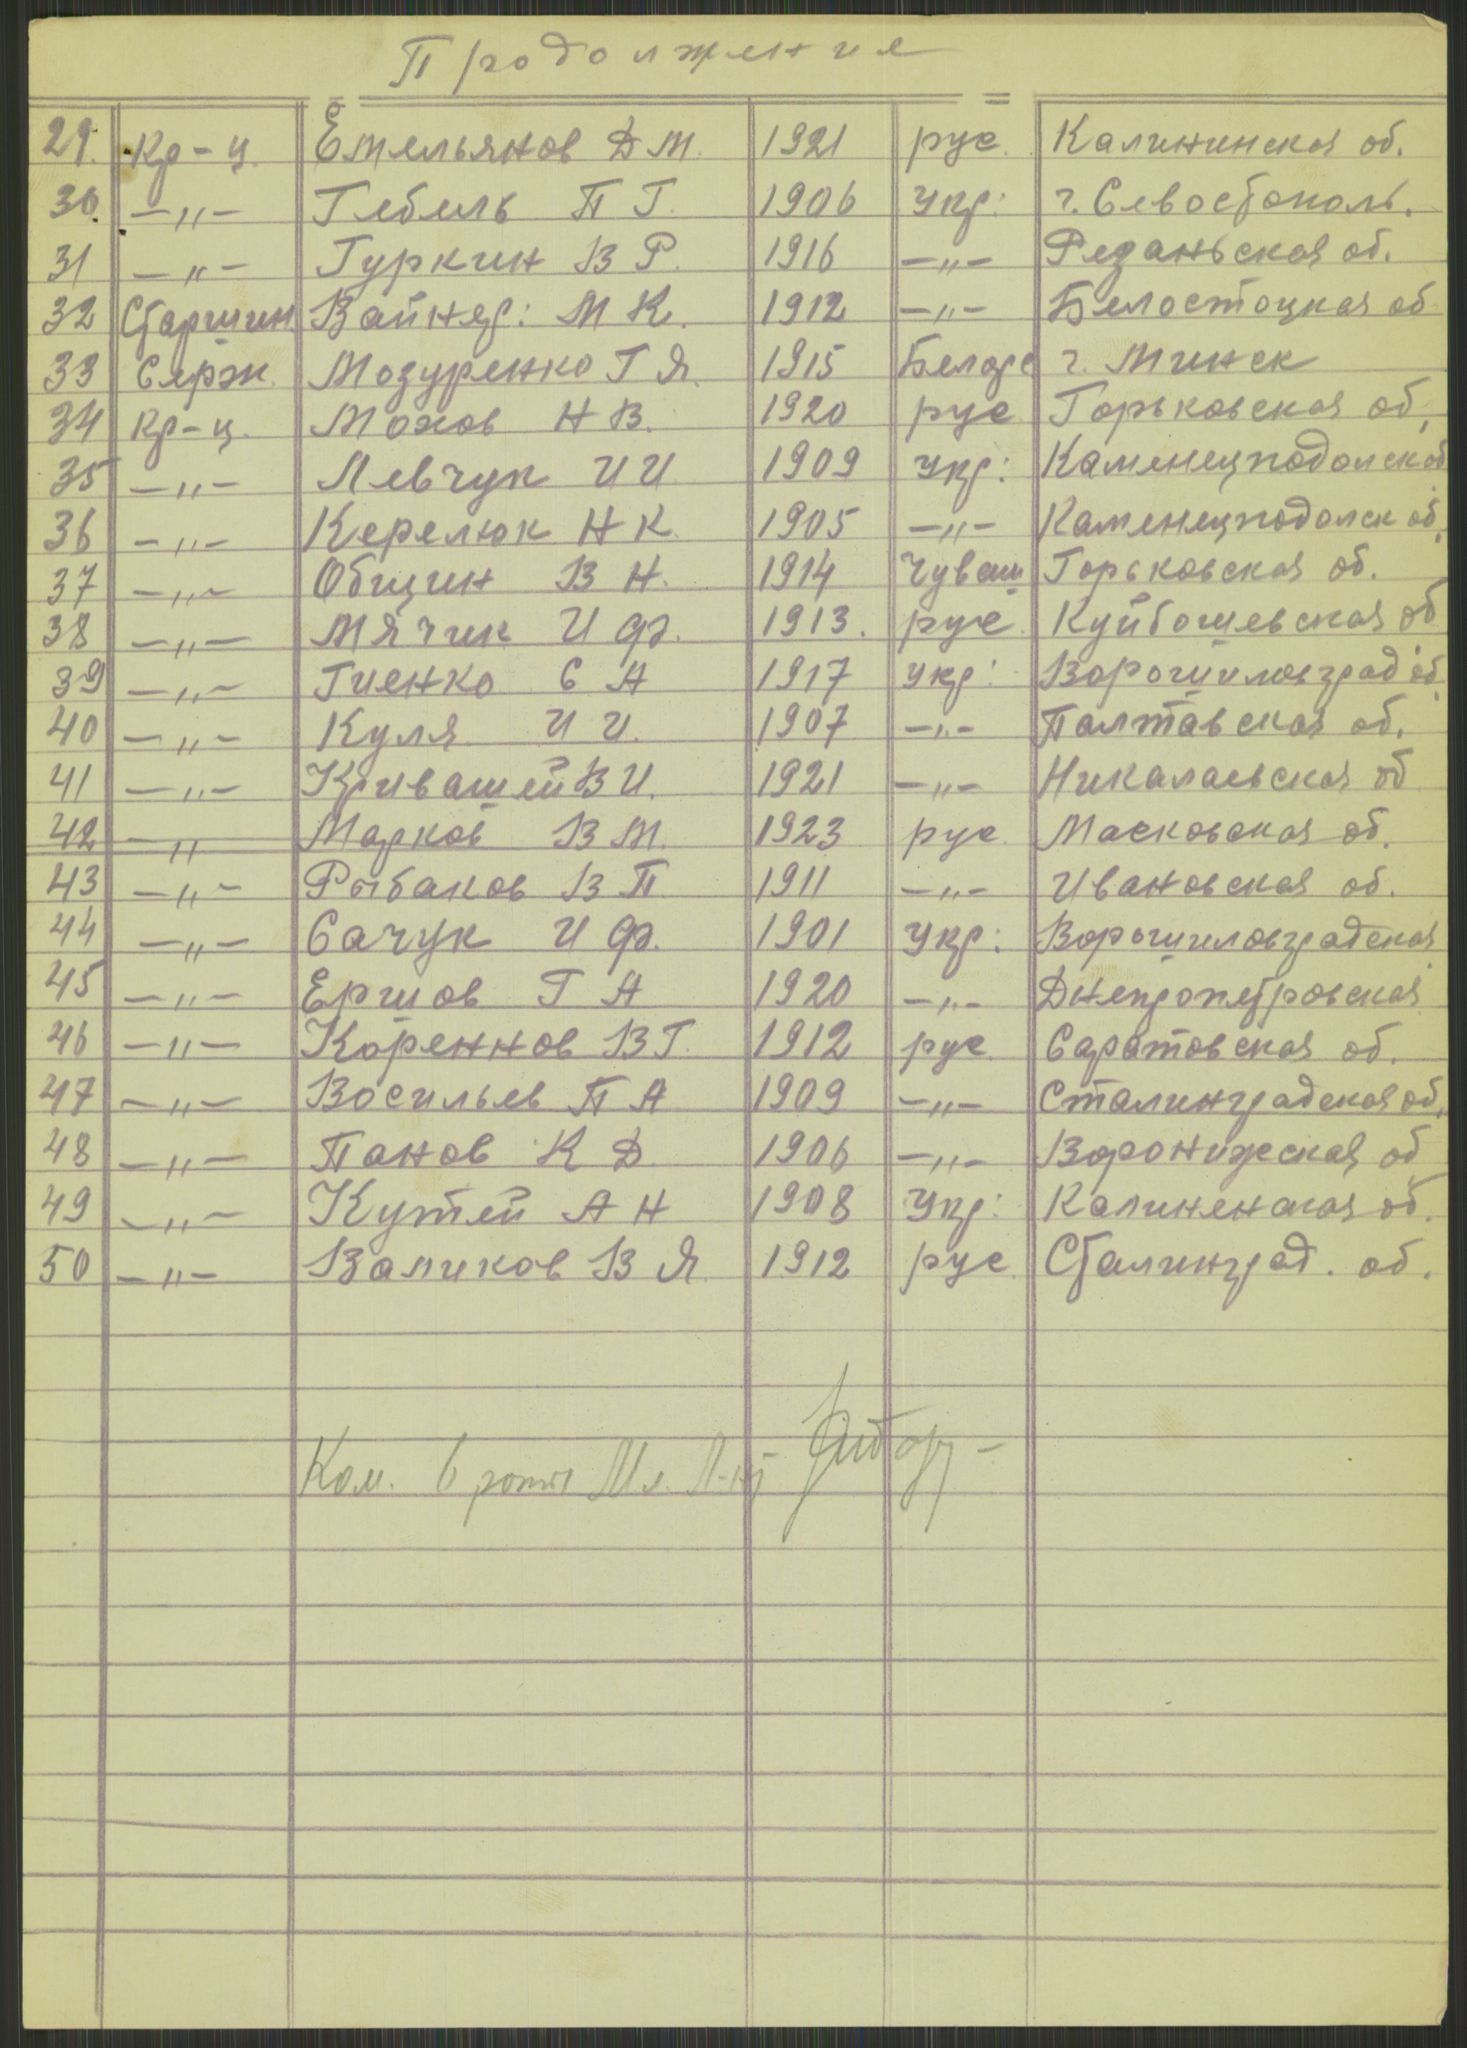 Продолжение
29. Кр-ц. Емельянов Д М. 1921 рус. Калининская об.
30. —„— Гебель П Г. 1906 Укр: г. Севостополь.
31 —„— Гуркин В Р. 1916 —„— Резаньская об.
32 Старшин Вайняр: М К. 1912 —„— Белостоцкая об
33 Серж. Мозуренко Г Я. 1915 Белорс г. Минск
34 Кр-ц. Мохов Н В. 1920 рус Горьковская об.
35 —„— Левчук И И 1909 Укр: Каменецподолск об
36 —„— Керелюк Н К. 1905 —„— Каменецподолск об.
37 —„— Общин В Н. 1914 Чуваш Горьковская об.
38 —„— Мячик И Ф. 1913. рус. Куйбошевская об
39 —„— Гиенко С А 1917 Укр: Ворошиловград об.
40 —„— Куля И И. 1907 —„— Палтавская об.
41 —„— Кривашей В И. 1921 —„— Никалаевская об
42 —„ Марков В М. 1923 рус. Масковская об.
43 —„— Рыбаков В П. 1911 —„— Ивановская об.
44 —„— Сачук И Ф. 1901 Укр: Ворошиловградская
45 —„— Ершов Г А 1920 —„— Днепропетровская
46 —„— Кореннов В Г. 1912 рус. Саратовская об.
47 —„— Восильев П А 1909 —„— Сталинградская об.
48 —„— Панов К Д 1906 —„— Воронижеская об
49 —„— Кутей А Н 1908 Укр: Калиненская об.
50 —„— Валиков В Я. 1912 рус. Сталинград. об.
Ком. 6 роты Мл. Л-нт